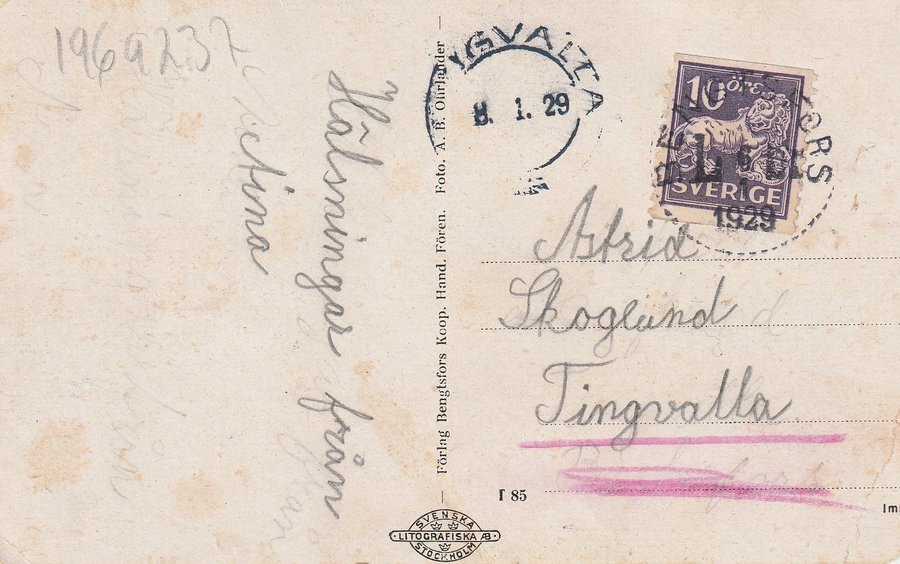 1969237
Hälsningar från
Förlag Bengtsfors Koop. Hand. Fören. Foto. A. B. Ohrlander
TINGVALLA
8. 1. 29
10 ÖRE
SVERIGE
BENGTSFORS
1929
Astrid
Skoglund
Tingvalla
T 85
SVENSKA
LITOGRAFISKA AB.
STOCKHOLM